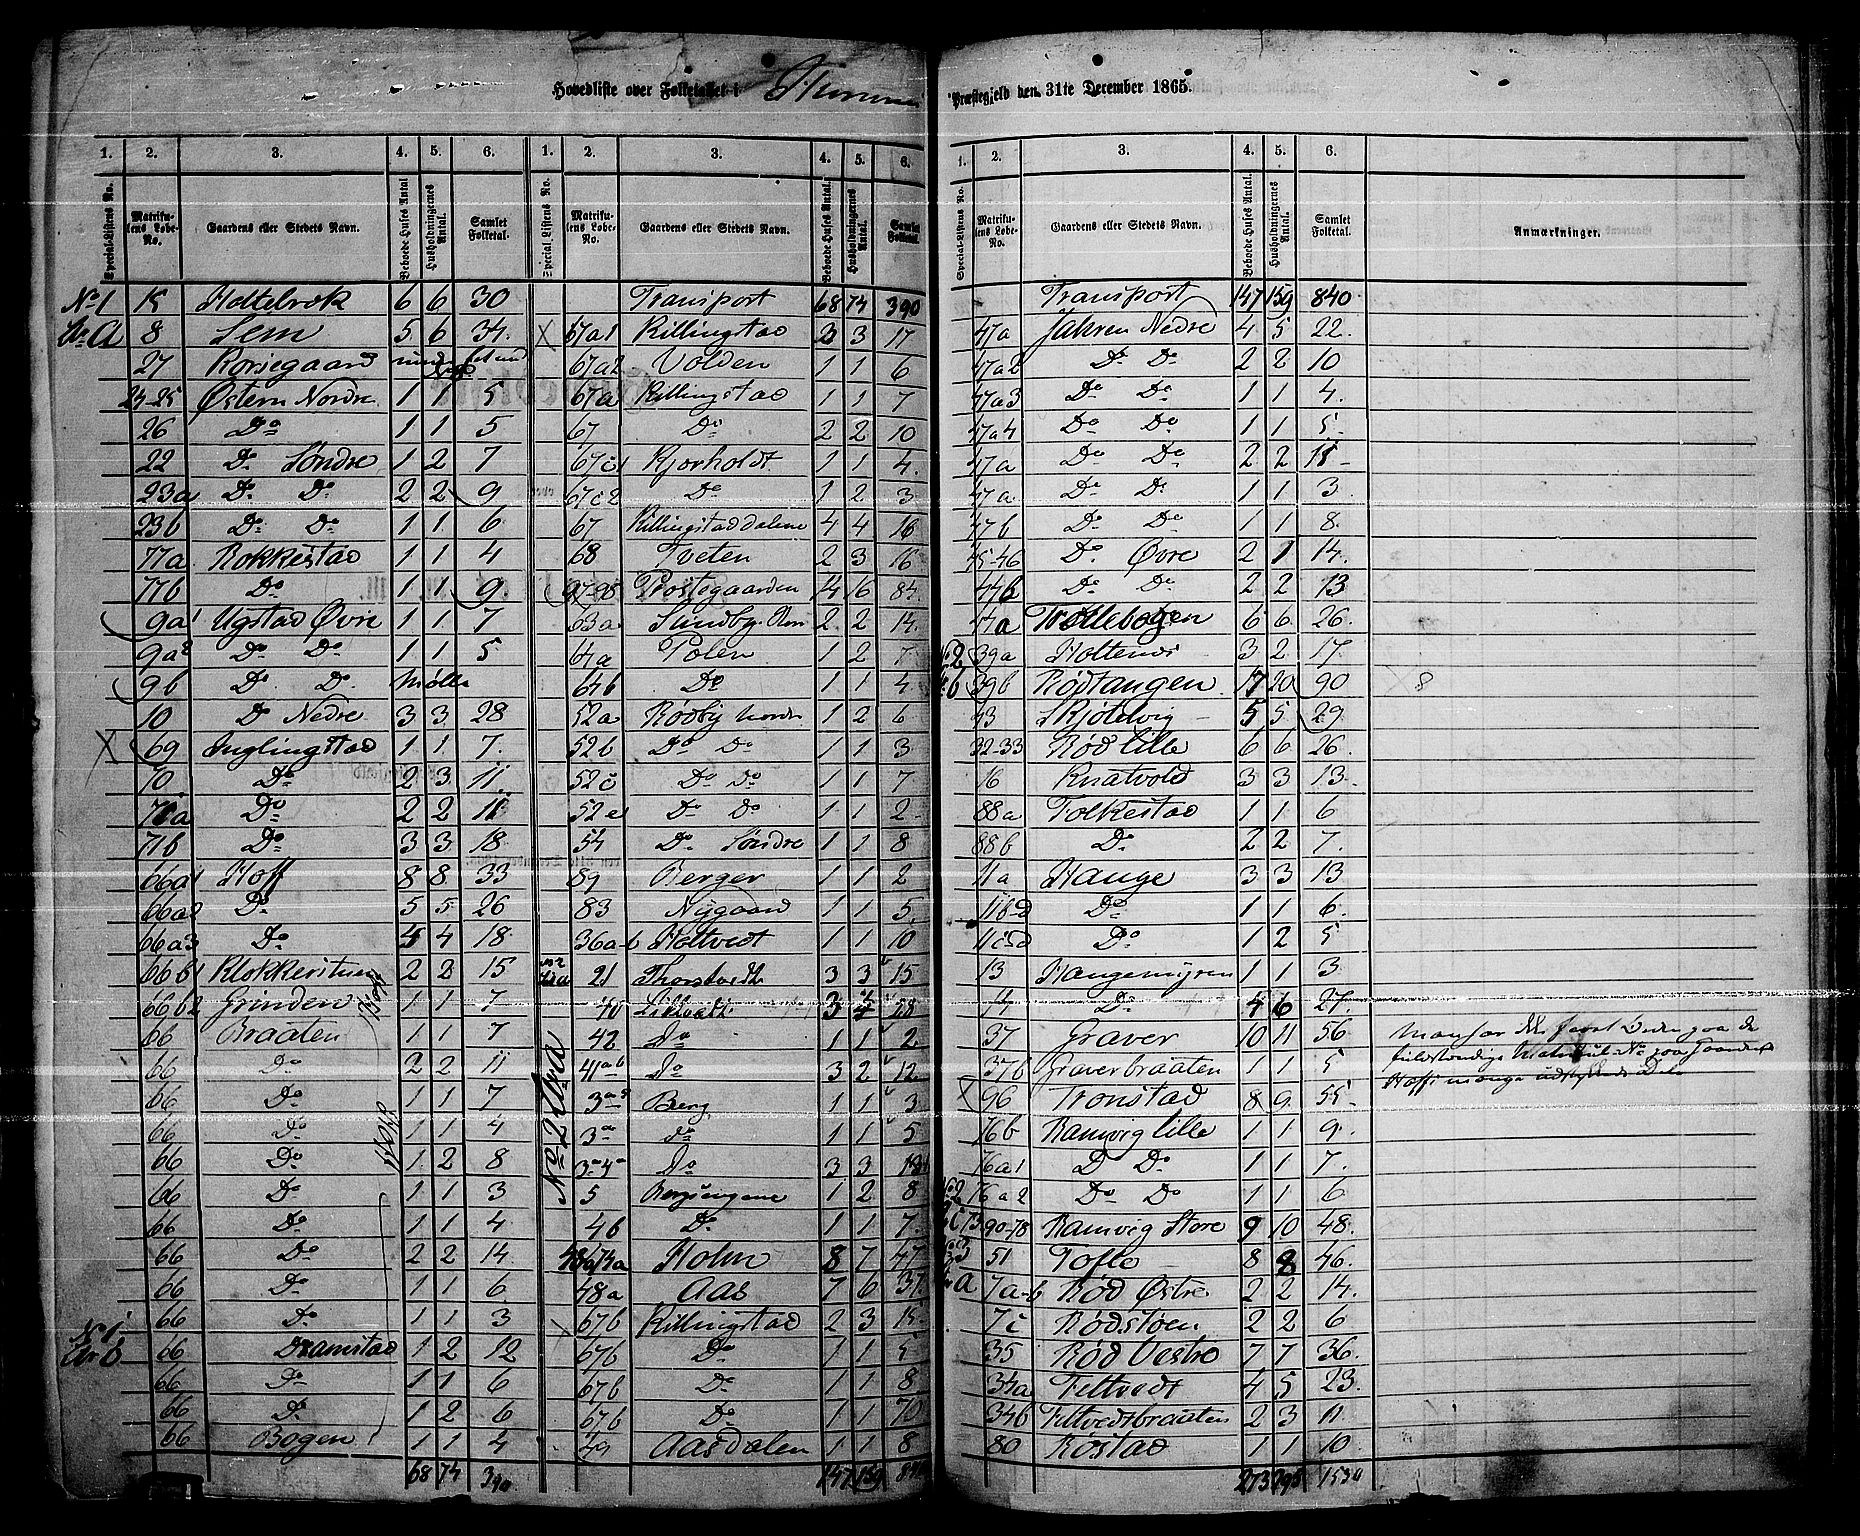 Hovedliste over Folketallet i
Præstegjeld den 31te December 1865.
1. 2. 3. 4. 5. 6. 1. 2. 3. 4. 5. 6. 1. 2. 3. 4. 5. 6.
Special-Listens No. Matrikulens Løbe-No. Gaardens eller Stedets Navn. Beboede Huses Antal Husholdningernes Antal. Samlet Folketal. Special-Listens No. Matrikulens Løbe-No. Gaardens eller Stedets Navn. Beboede Huses Antal. Husholdningernes Antal. Samlet Folketal. Special-Listens No. Matrikulens Løbe-No. Gaardens eller Stedets Navn. Beboede Huses Antal. Husholdningernes Antal. Samlet Folketal. Anmærkninger.
No 1 15 Holtebrek 6 6 30
Litr A 8 Sem 5 6 34
27 Korsegaard
24-25 Østern Nordre 1 1 5
26 Do 1 1 5
22 Do Søndre 1 2 7
23a Do Do 2 2 9
23b Do Do 1 1 6
77a Rokkestad 1 1 4
77b Do 1 1 9
9a1 Ugstad Øvre 1 1 7
9a2 Do Do 1 1 5
9b Do Do Mølle
10 Do Nedre 3 3 28
X 69 Inglingstad 1 1 7
70 Do 2 3 11
71a Do 2 2 11
71b Do 3 3 18
66a1 Hoff 8 8 33
66a2 Do 5 5 26
66a3 Do 4 4 18
66b1 Klokkerstuen 2 2 15
66b2 Grinden 1 1 7
66 Braaten 1 1 7
66 Do 2 2 11
66 Do 1 1 7
66 Do 1 1 4
66 Do 1 2 8
66 Do 1 1 3
66 Do 1 1 4
66 Do 2 2 14
66 Do 1 1 6
66 Do 1 1 3
No 1 Litr b 66 Dramstad 1 2 12
66 Do 1 1 6
66 Do 1 2 6
66 Bogen 1 1 4
68 74 390
Transport 68 74 390
X 67a1 Killingstad 3 3 17
67a2 Volden 1 1 6
67a Killingstad 1 1 7
67 Do 2 2 10
67c1 Kjorholdt 1 1 4
67c2 Do 1 2 3
67 Killingstaddalene 4 4 16
68 Tveten 2 3 16
97-98 Præstegaarden 14 16 84
63a Sundby 2 2 14
64a Polen 1 2 7
64b Do 1 1 4
52a Rødby Nordre 1 2 6
52b Do Do 1 1 3
52c Do Do 1 1 7
52e Do Do 1 1 2
54 Do Søndre 1 1 8
89 Berger 1 1 2
83 Nygaard 1 1 5
36a-b Holtvedt 1 1 10
21 Thorstvedt 3 3 15
40 3 4
42 Do 1 1 2
No 2 Litra 41ab Do 3 2 12
Berg 1 1 3
Do 1 1 5
Do 3 3
5 Bergsengene 1 2 8
4b Do 1 1 7
Holm 8 7 47
48a Aas 7 6 37
67b Killingstad 2 3 15
67b Do 1 1 5
67b Do 1 1 8
67b Do 1 1 10
49 Aasdalen 1 1 8
147 159 840
Transport 147 159 840
47a Jahren Nedre 4 5 22
47a2 Do Do 2 2 10
47a3 Do Do 1 1 4
47a4 Do Do 1 1 5
47a Do Do 2 2 11
47a Do Do 1 1 3
47b Do Do 1 1 8
45-46 Do Øvre 2 1 14
44b Do Do 2 2 13
44a Trollebogen 6 6 26
No 2 39a Holtenes 3 2 17
b 39b Rødtangen 17 20 90 8
43 Skjøtelvig 5 5 29
32-33 Rød lille 6 6 26
16 Knatvold 3 3 13
88a Folkestad 1 1 6
88b Do 2 2 7
11a Hauge 3 3 13
11b-d Do 1 1 6
Do 1 2 5
13 Haugemyren 1 1 3
14 Do 4 6 27
37 Graver 10 11 56
37b Graverbraaten 1 1 5
X 96 Tronstad 8 9 55
76b Ramvig lille 1 1 9
76a1 Do Do 1 1 7
No 2 76a2 Do Do 1 1 6
90-78 Ramvig Store 9 10 48
No 3 51 Tofte 8 8 46
a 7a-b Rød Østre 2 2 14
7c Rødstøen 2 2 6
35 Rød Vestre 7 7 36
34a Feltvedt 4 5 23
34b Feltvedtbraaten 2 3 11
80 Røstad 1 1 10
273 298 1534